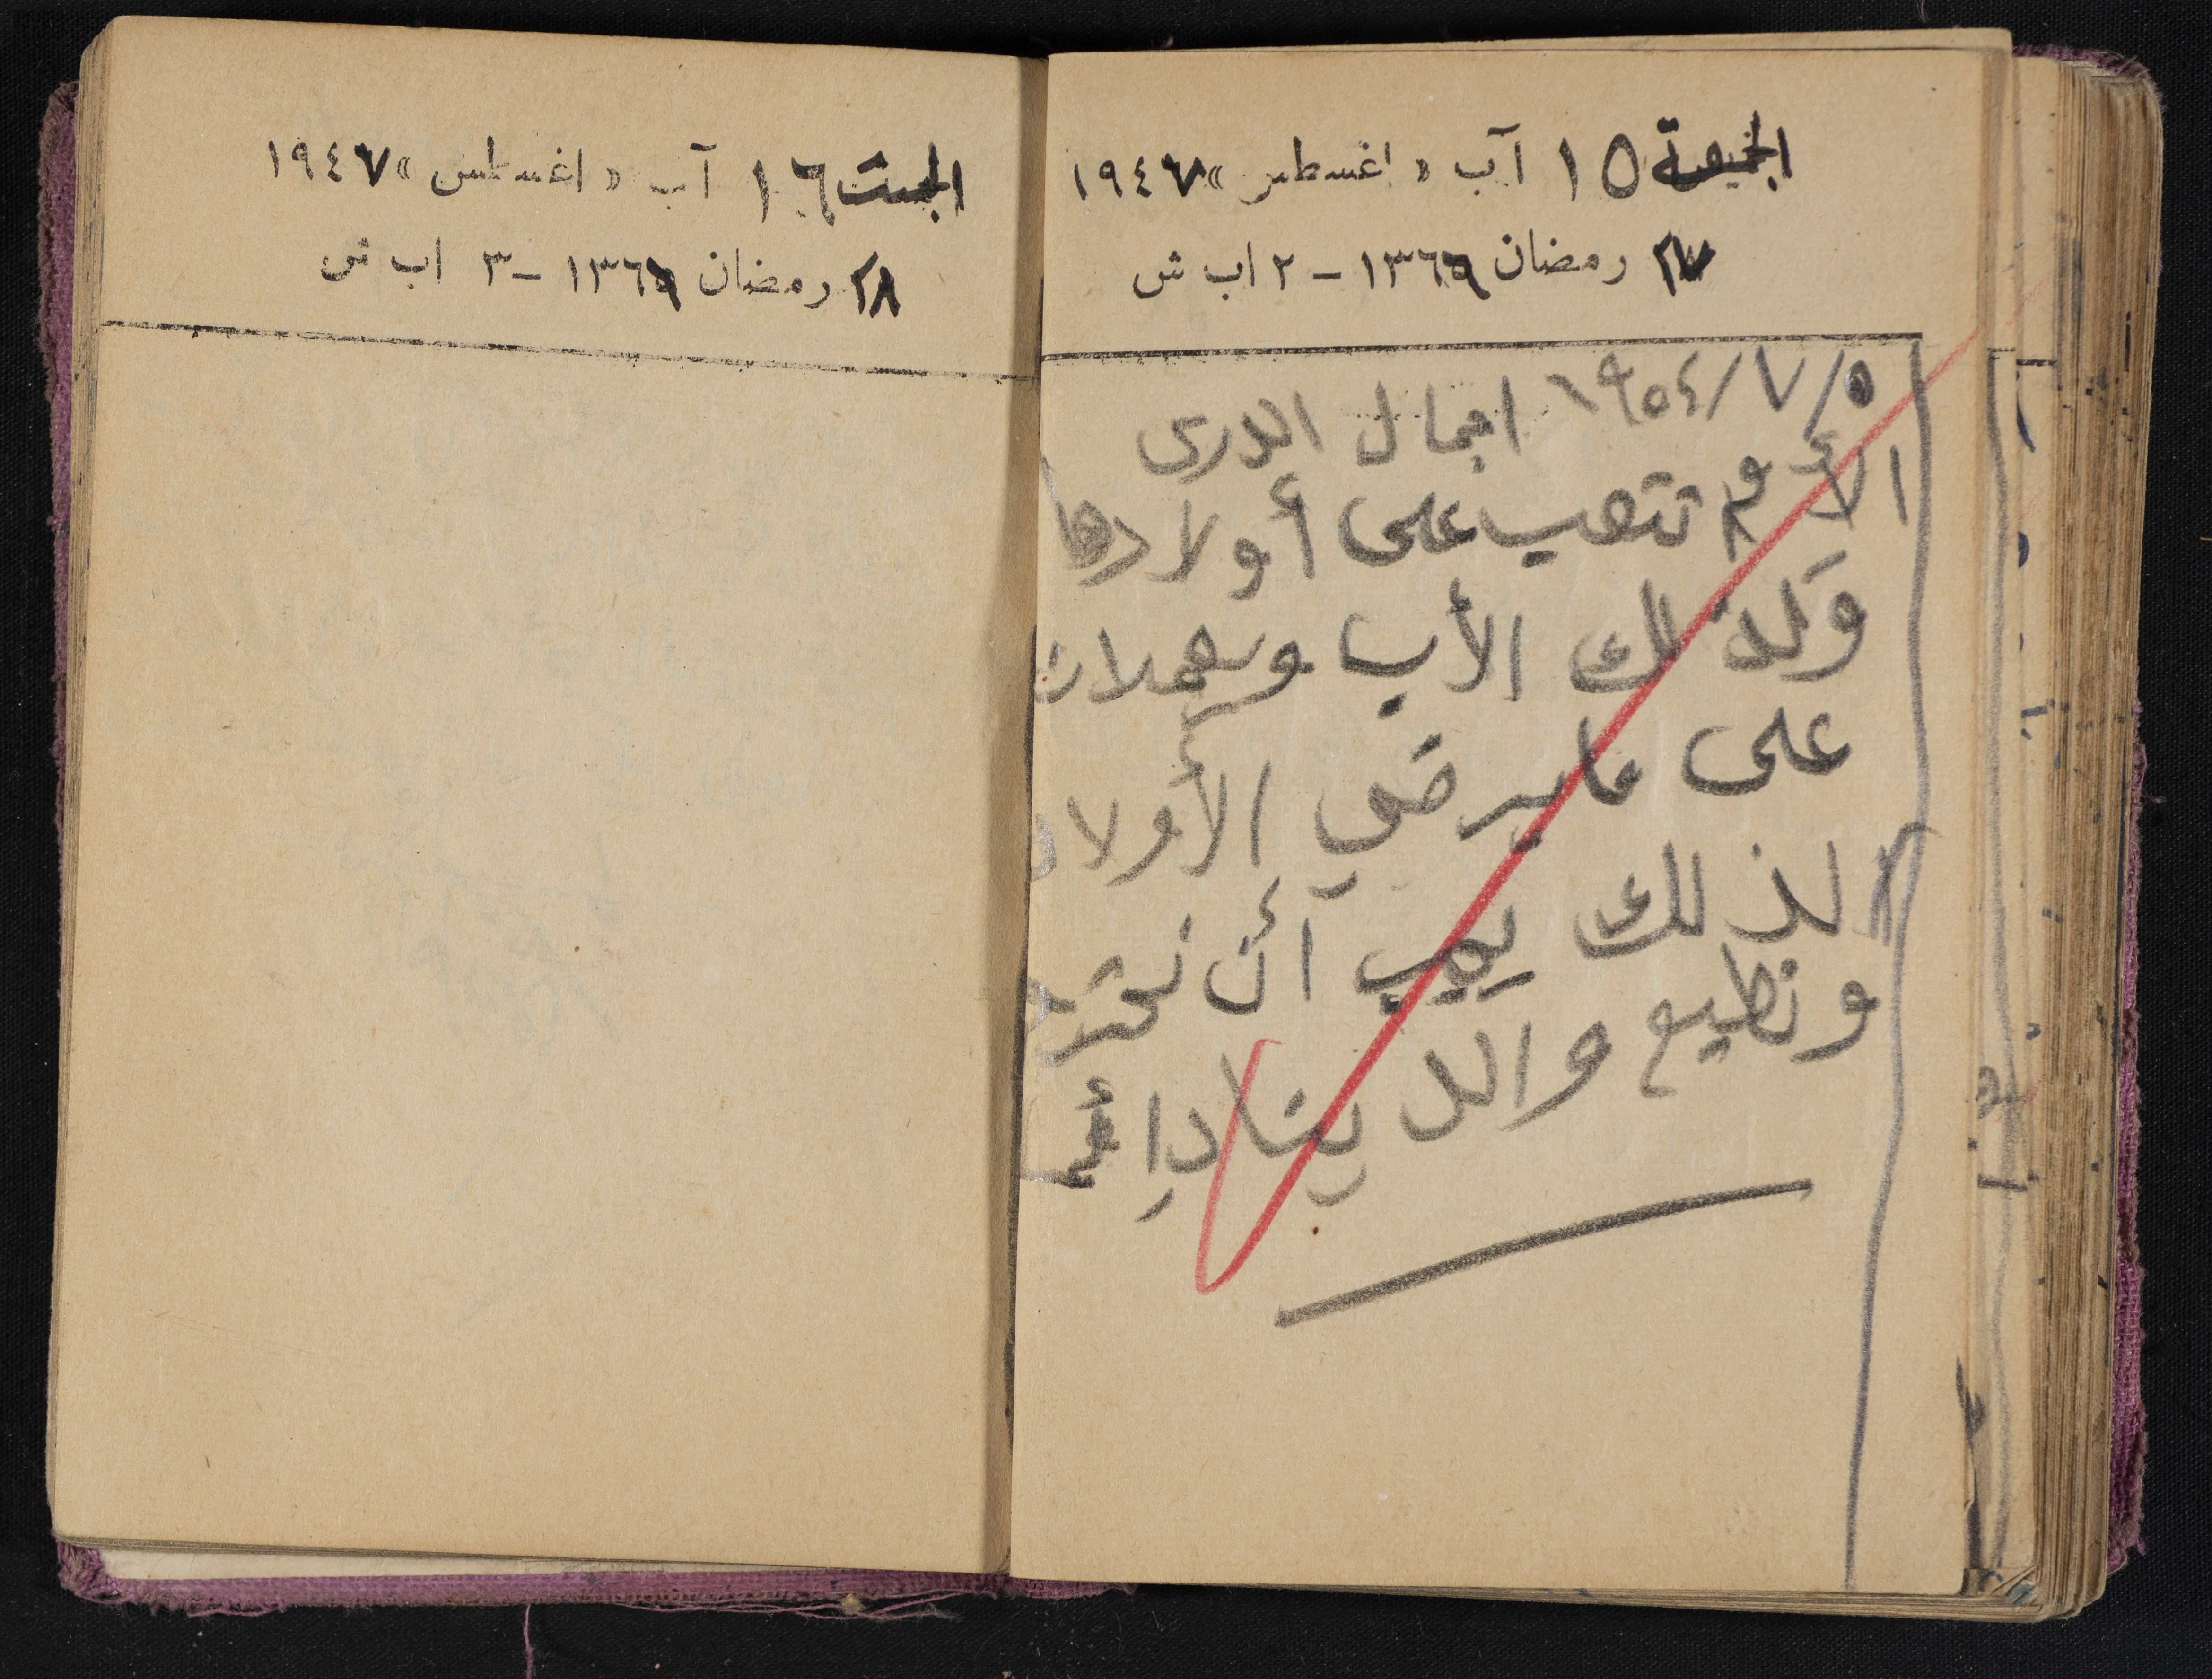 الجمعة ١٥ آب « اغسطس » ١٩٤٧
٢٧ رمضان ١٣٦٦ - ٢ اب ش
٥/٧/١٩٥٤ اجمال الدرس
الأم تتعب على أولادها
وكذلك الأب ويعملان
على ما يرضي الأولاد
لذلك يجب أن نحترم
ونطيع والدينا دائما
السبت ١٦ آب « اغسطس » ١٩٤٧
٢٨ رمضان ١٣٦٦ - ٣ اب ش